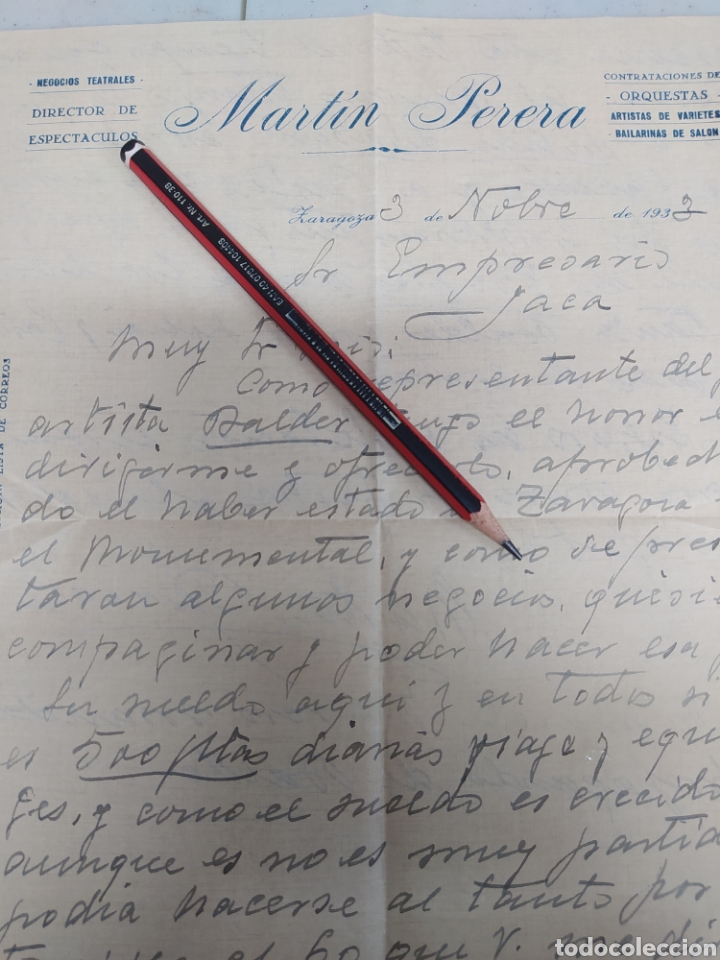 - NEGOCIOS TEATRALES -
DIRECTOR DE
ESPECTACULOS
Martín Perera
CONTRATACIONES DE
- ORQUESTAS -
ARTISTAS DE VARIETES
BAILARINAS DE SALON
Zaragoza 3 de Nobre de 1933
Sr Empresario
Jaca
LISTA DE CORREOS
Muy Sr mio:
Como representante del
artista Balder tengo el honor
dirigirme y ofrecerlo, aprobechan
do el haber estado Zaragoza
el Monumental, y como se presen
taran algunos negocios, quisie
compaginar y poder hacer esa
Su sueldo aqui y en todos si
es 500 Ptas diarias viage y equi
ges, y como el sueldo es crecido
aunque es no es muy partida
podia hacerse al tanto por
el 60 que V. me di
Art. Nr. 110-3B
EAN 40 07817 104408
todocoleccion